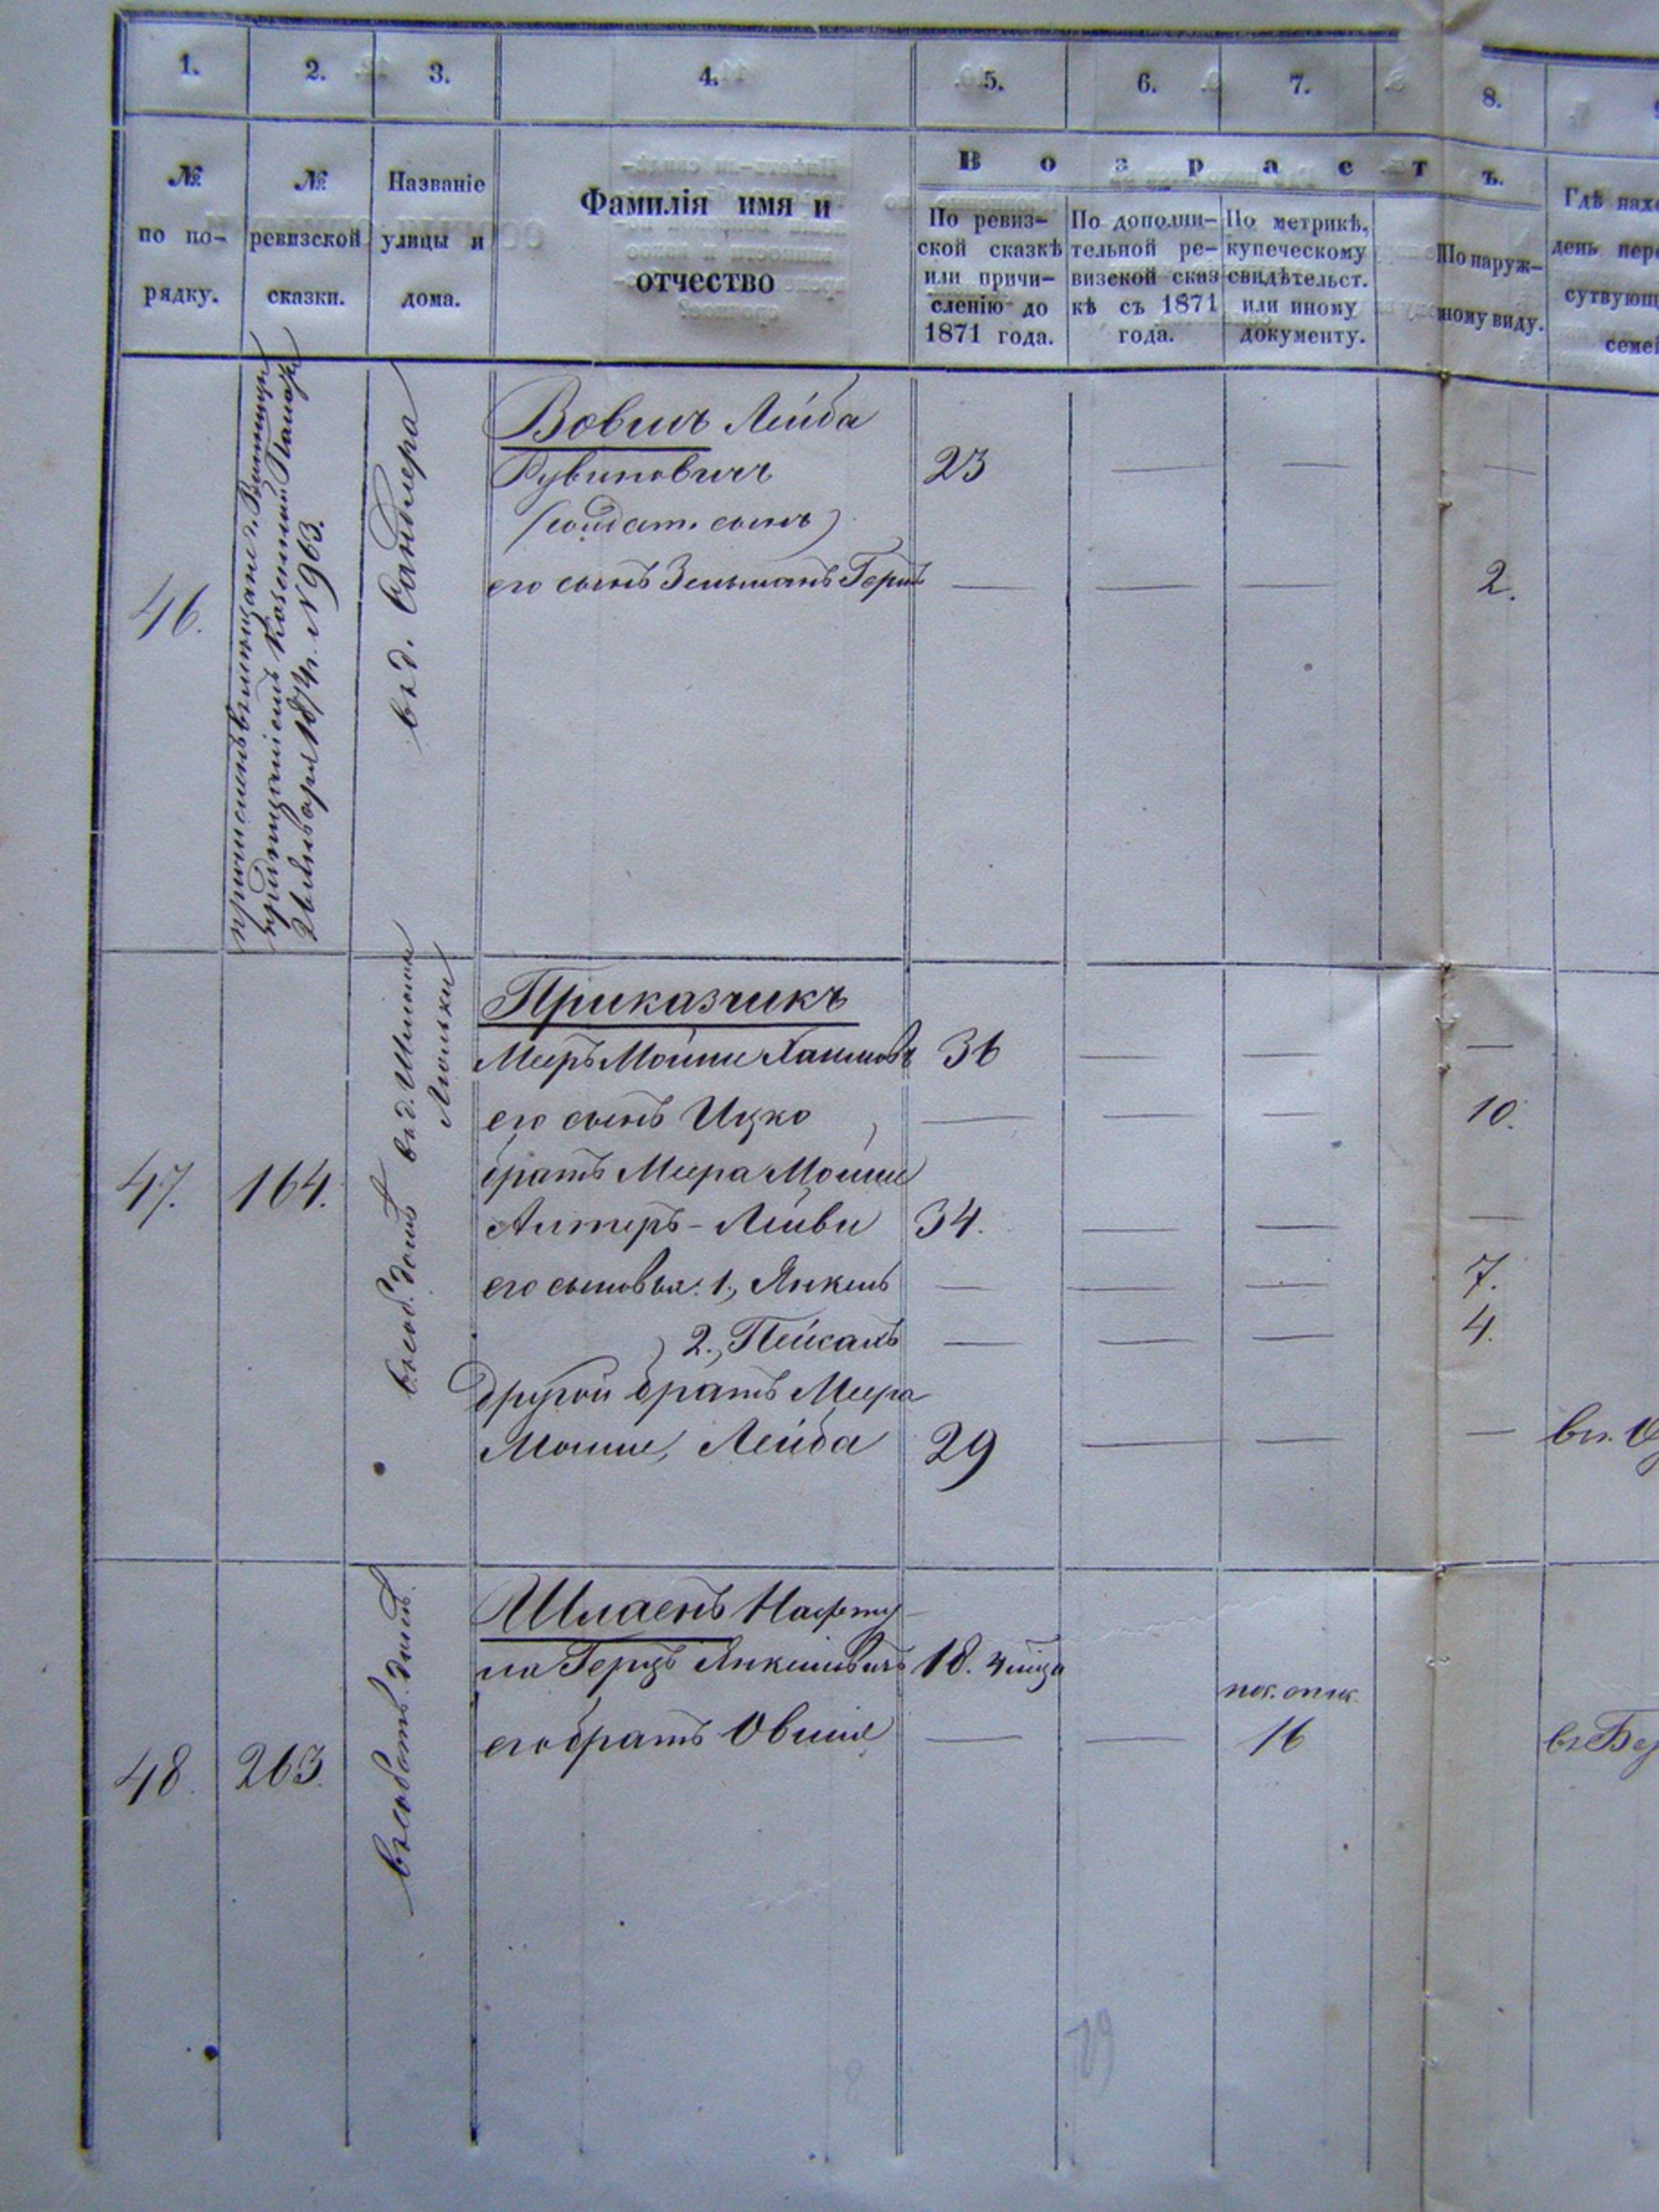 1. 2. 3. 4. 5. 6. 7. 8.
№ по по- рядку.
№ ревизской сказки.
Названіе улицы и дома.
Фамилія имя и отчество
Возрастъ.
По ревиз- ской сказкѣ или причи- сленію до 1871 года.
По дополни- тельной ре- визской сказ кѣ съ 1871 года.
По метрикѣ, купеческому свидѣтельст. или иному документу.
По наруж- ному виду.
Гдѣ нахо
день пере
сутвующ
семей
46.
Казенной Палаты
Января 1874 г. № 963.
въ д. Сандлера
Вовшъ Лейба
Рувиновичъ 23 — — —
(солдат. сынъ)
его сынъ Зельманъ Герш — — — 2.
47. 164.
въ соб. домѣ въ д.
Приказчикъ
Мееръ Мошие Хаимов 36 — — —
его сынъ Ицко — — — 10.
братъ Меера Мошие
Алтеръ-Лейви 34. — — —
его сыновья: 1., Янкель — — — 7.
2., Пейсахъ — — — 4.
другой братъ Меера
Мошие, Лейба 29 — — —
48. 263.
въ собств. домѣ.
Шлаенъ Нафту-
ла Герцъ Янкелевичъ 18.
его братъ Овшіе — — 16
29